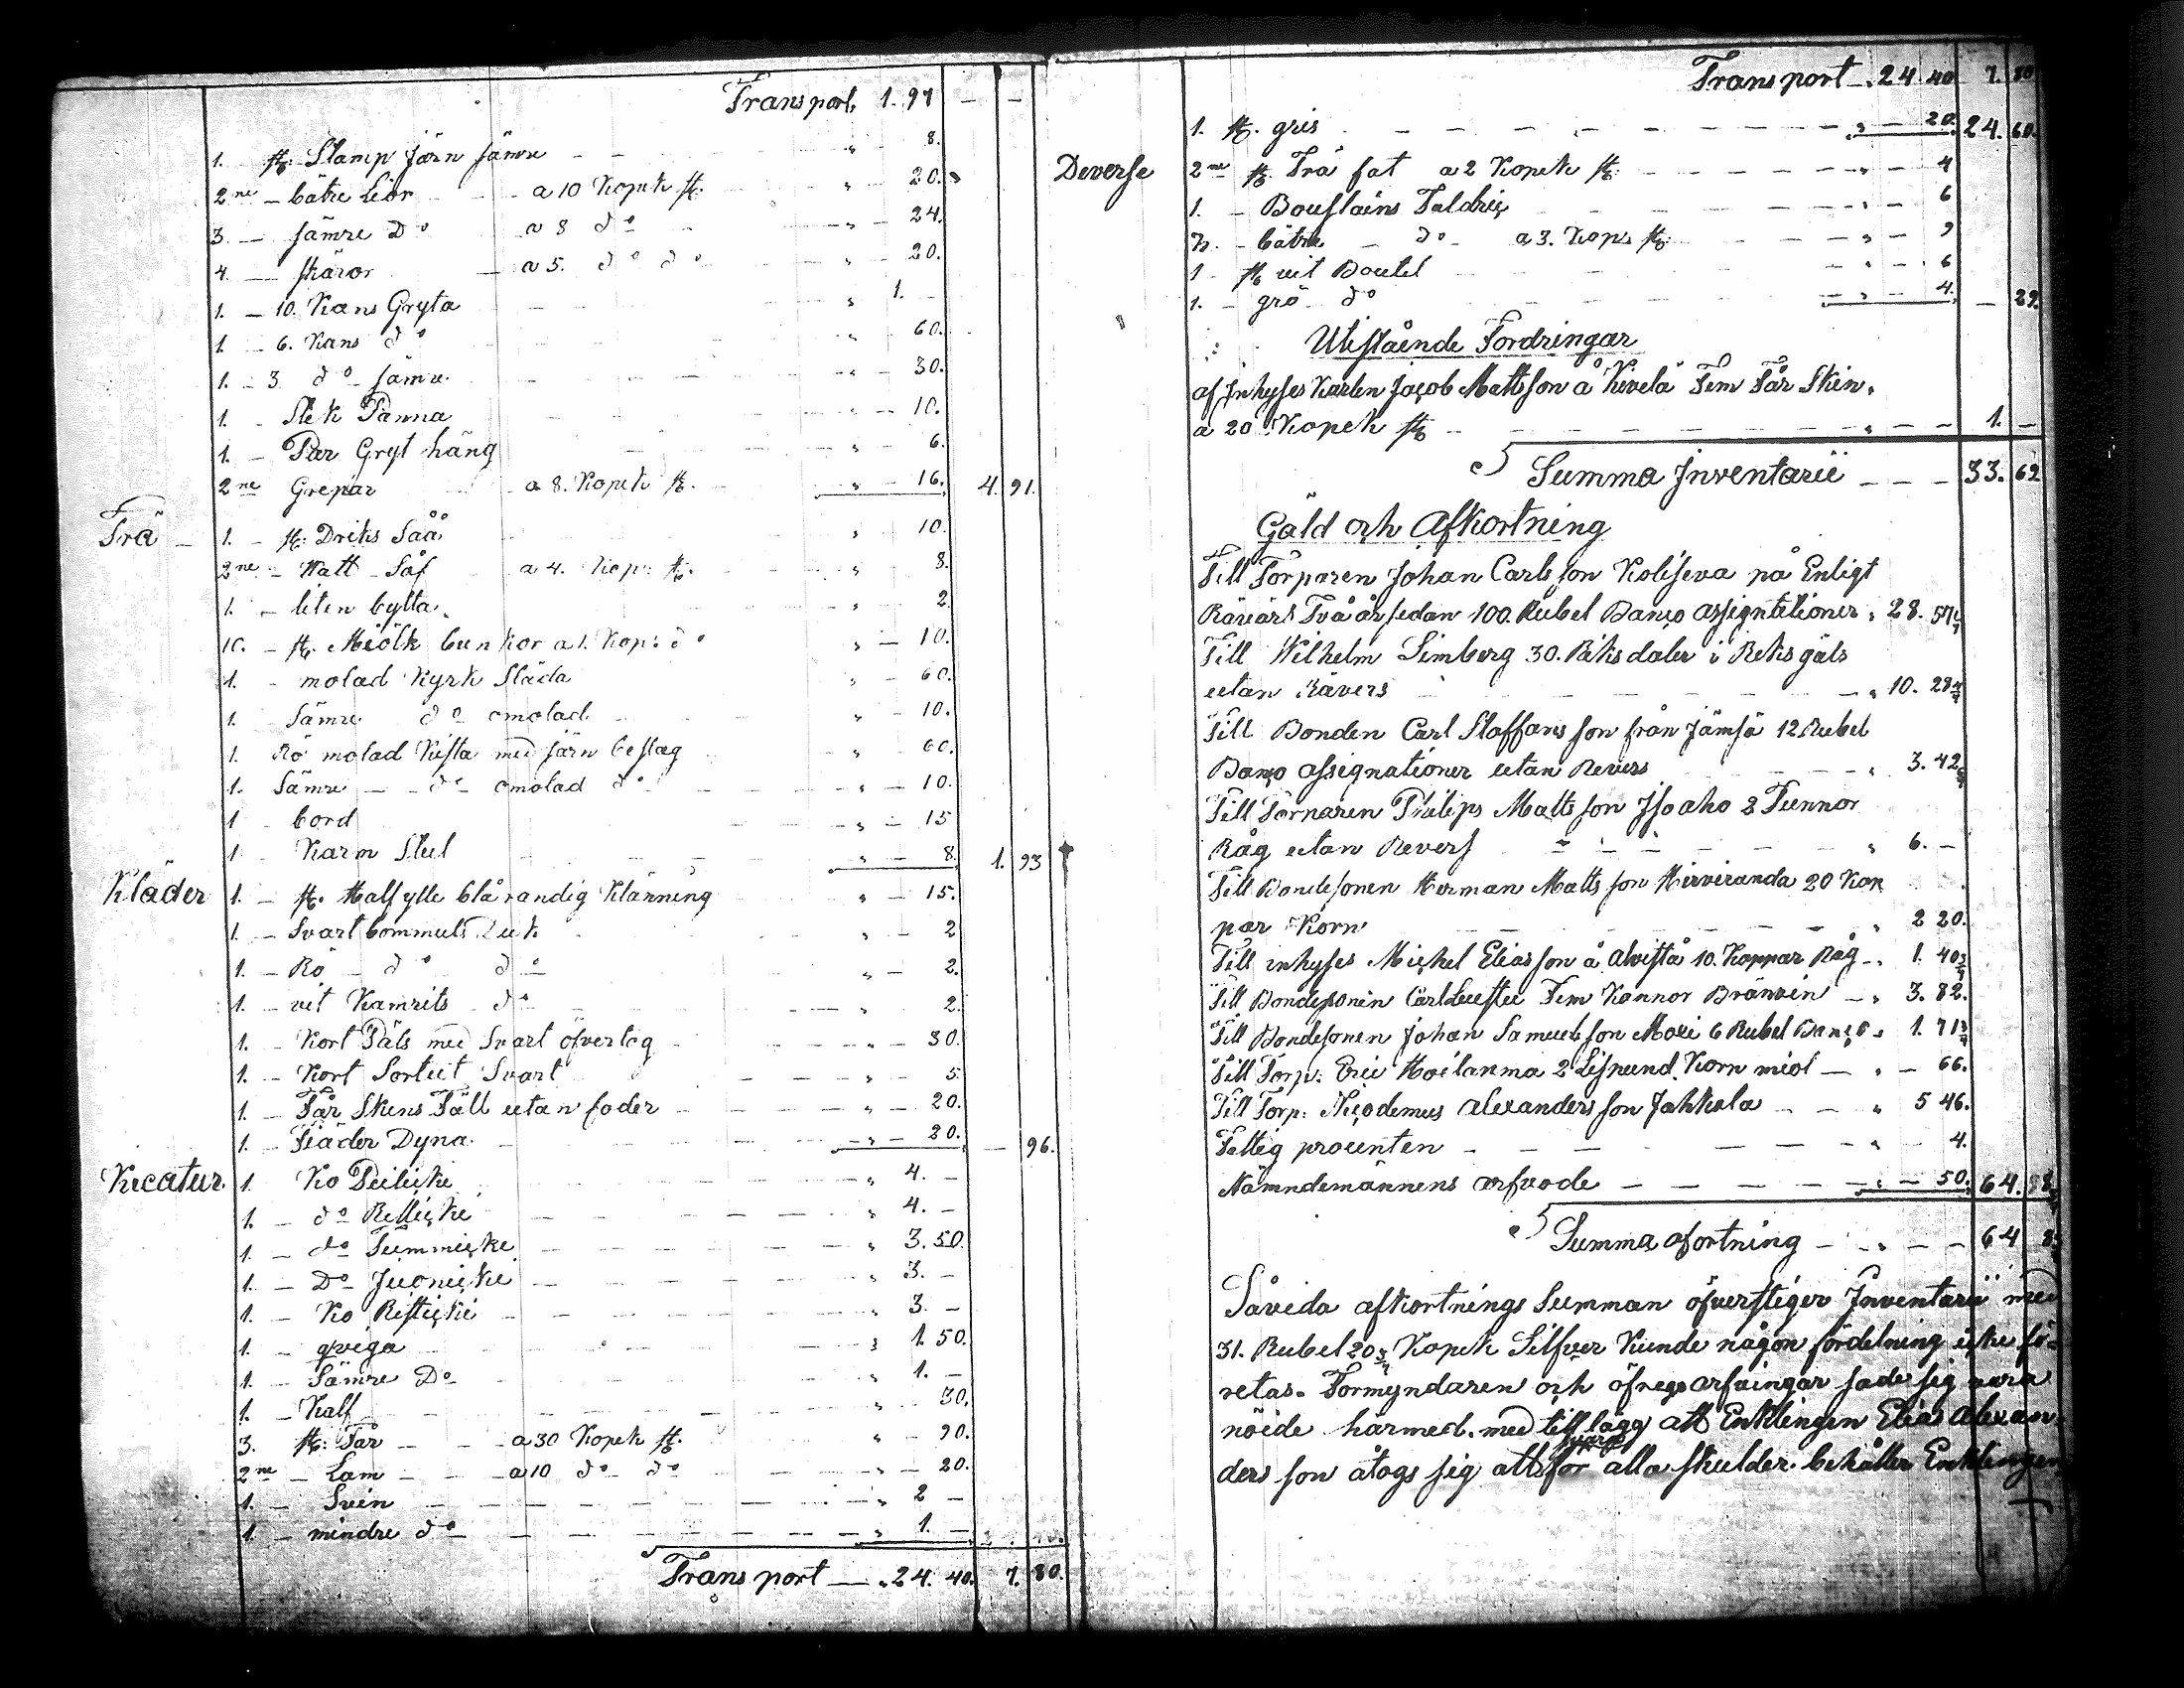 Transport 1. 97 — —
1. st. Stamp Järn sämre " 8.
2ne — bätre Liör a 10 Kopek st. " 20.
3. — sämre Do a 8 do " 24.
4. — skäror a 5. do do " 20.
1. — 10. Kans Gryta " 1. —
1. — 6. Kans do " 60.
1. — 3 do sämre " — 30.
1. Stek Panna " — 10.
1. — Par Gryt häng " — 6.
2ne Grepar a 8. Kopek st. " — 16. 4. 91.
Trä — 1. — st. Driks Såå " 10.
2ne — Watt Såf a 4. Kop: st. " 8.
1. — liten bytta " 2.
10. — st. Miölk bunkor a 1. Kop: do " — 10.
1. — molad Kyrk Släda " — 60.
1. Sämre do omolad " — 10.
1. Rö molad Kista med järn beslag " 60.
1. Sämre — do omolad do " — 10.
1 — bord " — 15
1 — Karm Stul " — 8. 1. 93
Kläder 1. — st. Halfylle blårandig Klänning " — 15.
1. — Svart bommuls Duk " — 2
1. — Rö — do do " — 2.
1. — vit Kamriks do " 2.
1. — Kort Päls med Svart öfvertog " — 30.
1. — Kort Sortut Svart " — 5.
1. — Får Skens Fäll utan foder " — 20.
1. — Fiäder Dyna " — 20. — 96.
Kreatur. 1. Ko " 4. —
1. — do " 4. —
1. — do " 3. 50.
1. — Do " 3. —
1. — Ko " 3. —
1. — qviga " 1. 50.
1. — Sämre Do " 1. —
1. — Kalf " 30.
3. st. Får — a 30 Kopek st. " — 90.
2ne — Lam — a 10 do do " — 20.
1. — Svin " 2 —
1. — mindre do " 1. —
Transport — " 24. 40. 7. 80.
Transport — " 24 40 7. 80
1. st. gris " — 20. 24. 60.
Deverse 2ne st. Trä fat a 2 Kopek st. " — 4
1. — Taldrig " — 6
3. — bätre — do a 3. Kop: st. " — 9
1 — st. vit Boutel " — 6
1. — grö do " — 4. — 29.
Utestående Fordringar
af Inhyses Karlen Jacob Mattsson å Fem Får Skin
a 20 Kopek st. " — 1. —
Summa Inventarii — 33. 69
Gäld och Afkortning
Till Torparen Johan Carlsson på Enligt
Två år sedan 100. Rubel Banco " 28. 57
Till Wilhelm Simberg 30. Riksdaler i Reksgäls
utan Rävers " 10. 28
Till Bonden Carl Staffansson från Jämsä 12 Rubel
Banco assignationer utan Revers " 3. 42
Till Philips Mattsson 2 Tunnor
Råg utan Revers " 6. —
Till Bondesonen Herman Mattsson Hirviranda 20 Kap
par Korn " 2 20.
Till inhyses Michel Eliasson å 10. Kappar Råg " 1. 40
Till Bondesonen Carl Fem Kannor Bränvin " 3. 82.
Till Bondesonen Johan Samuelsson 6 Rubel Banco " 1. 71
Till Torp: 2 Korn miöl " — 66.
Till Torp: Nicodemus Alexandersson Jahkola " 5 46.
Fattig procenten " — 4.
Nämndemännens arfvode " — 50. 64. 88
Summa afortning " — 64 88
Såvida afkortnings Summan öfverstiger Inventarii med
31. Rubel 20 Kopek Silfver Kunde någon fördelning icke fö=
retas. Förmyndaren och öfrega arfvingar sade sig vara
nöide härmed. med tillägg att Enklingen Elias Alexan
ders son åtogs sig att svara för alla skulder. behåller Enklingen